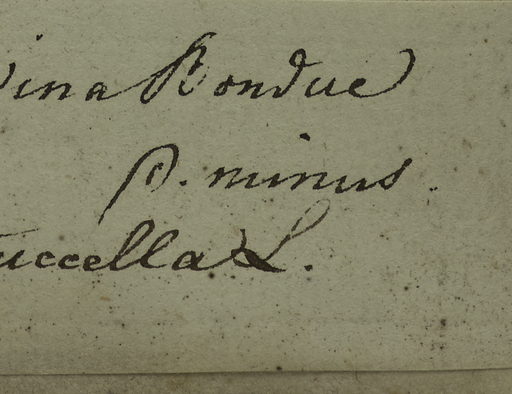 dina Bonduc
β. minus.
uccella L.